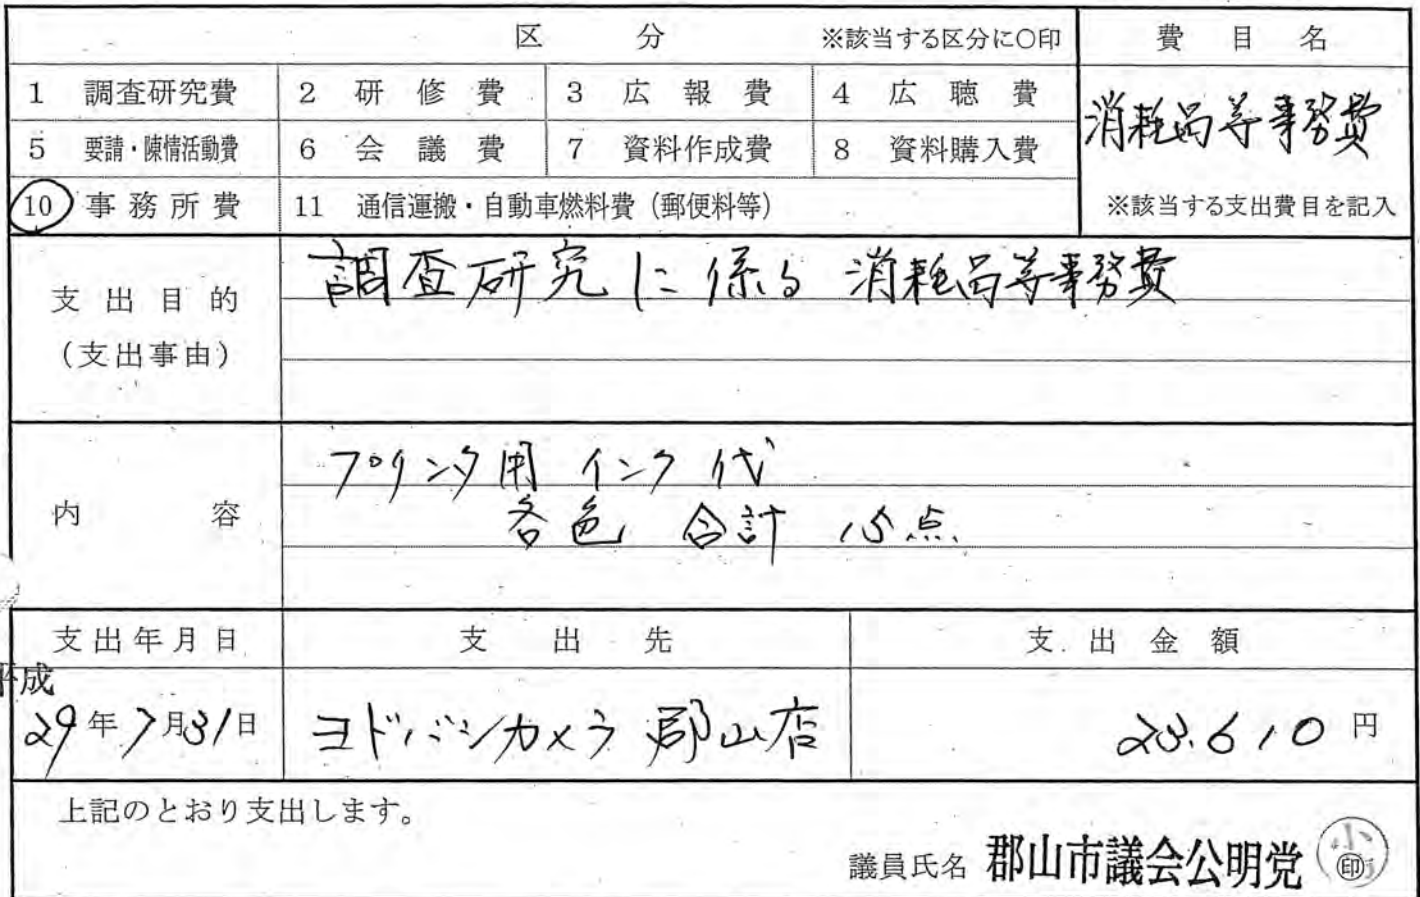 区 分 ※該当する区分に○印 費目名
1 調査研究費 2 研修費 3 広報費 4 広聴費
消耗品等事務費
5 要請・陳情活動費 6 会議費 7 資料作成費 8 資料購入費
10 事務所費 11 通信運搬・自動車燃料費(郵便料等) ※該当する支出費目を記入
調査研究に係る消耗品等事務費
支出目的
(支出事由)
プリンタ用インク代
内容 各色 合計 15点
支出年月日 支出先 支出金額
平成
29年7月31日 ヨドバシカメラ 郡山店 23,610円
上記のとおり支出します。
議員氏名 郡山市議会公明党 印